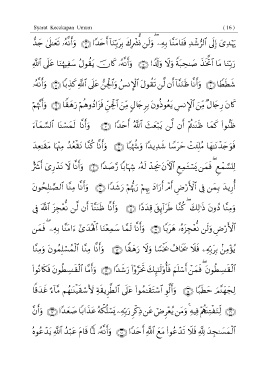 Syarat Kecakapan Umum ( 16 )
يَهْدِىٓ إِلَى ٱلرُّشْدِ فَـَٔامَنَّا بِهِۦ ۖ وَلَن نُّشْرِكَ بِرَبِّنَآ أَحَدًا ۝ وَأَنَّهُۥ تَعَـٰلَىٰ جَدُّ
رَبِّنَا مَا ٱتَّخَذَ صَـٰحِبَةً وَلَا وَلَدًا ۝ وَأَنَّهُۥ كَانَ يَقُولُ سَفِيهُنَا عَلَى ٱللَّهِ
شَطَطًا ۝ وَأَنَّا ظَنَنَّآ أَن لَّن تَقُولَ ٱلْإِنسُ وَٱلْجِنُّ عَلَى ٱللَّهِ كَذِبًا ۝ وَأَنَّهُۥ
كَانَ رِجَالٌ مِّنَ ٱلْإِنسِ يَعُوذُونَ بِرِجَالٍ مِّنَ ٱلْجِنِّ فَزَادُوهُمْ رَهَقًا ۝ وَأَنَّهُمْ
ظَنُّوا۟ كَمَا ظَنَنتُمْ أَن لَّن يَبْعَثَ ٱللَّهُ أَحَدًا ۝ وَأَنَّا لَمَسْنَا ٱلسَّمَآءَ
فَوَجَدْنَـٰهَا مُلِئَتْ حَرَسًا شَدِيدًا وَشُهُبًا ۝ وَأَنَّا كُنَّا نَقْعُدُ مِنْهَا مَقَـٰعِدَ
لِلسَّمْعِ ۖ فَمَن يَسْتَمِعِ ٱلْـَٔانَ يَجِدْ لَهُۥ شِهَابًا رَّصَدًا ۝ وَأَنَّا لَا نَدْرِىٓ أَشَرٌّ
أُرِيدَ بِمَن فِى ٱلْأَرْضِ أَمْ أَرَادَ بِهِمْ رَبُّهُمْ رَشَدًا ۝ وَأَنَّا مِنَّا ٱلصَّـٰلِحُونَ
وَمِنَّا دُونَ ذَٰلِكَ ۖ كُنَّا طَرَآئِقَ قِدَدًا ۝ وَأَنَّا ظَنَنَّآ أَن لَّن نُّعْجِزَ ٱللَّهَ فِى
ٱلْأَرْضِ وَلَن نُّعْجِزَهُۥ هَرَبًا ۝ وَأَنَّا لَمَّا سَمِعْنَا ٱلْهُدَىٰٓ ءَامَنَّا بِهِۦ ۖ فَمَن
يُؤْمِنۢ بِرَبِّهِۦ فَلَا يَخَافُ بَخْسًا وَلَا رَهَقًا ۝ وَأَنَّا مِنَّا ٱلْمُسْلِمُونَ وَمِنَّا
ٱلْقَـٰسِطُونَ ۖ فَمَنْ أَسْلَمَ فَأُو۟لَـٰٓئِكَ تَحَرَّوْا۟ رَشَدًا ۝ وَأَمَّا ٱلْقَـٰسِطُونَ فَكَانُوا۟
لِجَهَنَّمَ حَطَبًا ۝ وَأَلَّوِ ٱسْتَقَـٰمُوا۟ عَلَى ٱلطَّرِيقَةِ لَأَسْقَيْنَـٰهُم مَّآءً غَدَقًا
۝ لِّنَفْتِنَهُمْ فِيهِ ۚ وَمَن يُعْرِضْ عَن ذِكْرِ رَبِّهِۦ يَسْلُكْهُ عَذَابًا صَعَدًا ۝ وَأَنَّ
ٱلْمَسَـٰجِدَ لِلَّهِ فَلَا تَدْعُوا۟ مَعَ ٱللَّهِ أَحَدًا ۝ وَأَنَّهُۥ لَمَّا قَامَ عَبْدُ ٱللَّهِ يَدْعُوهُ